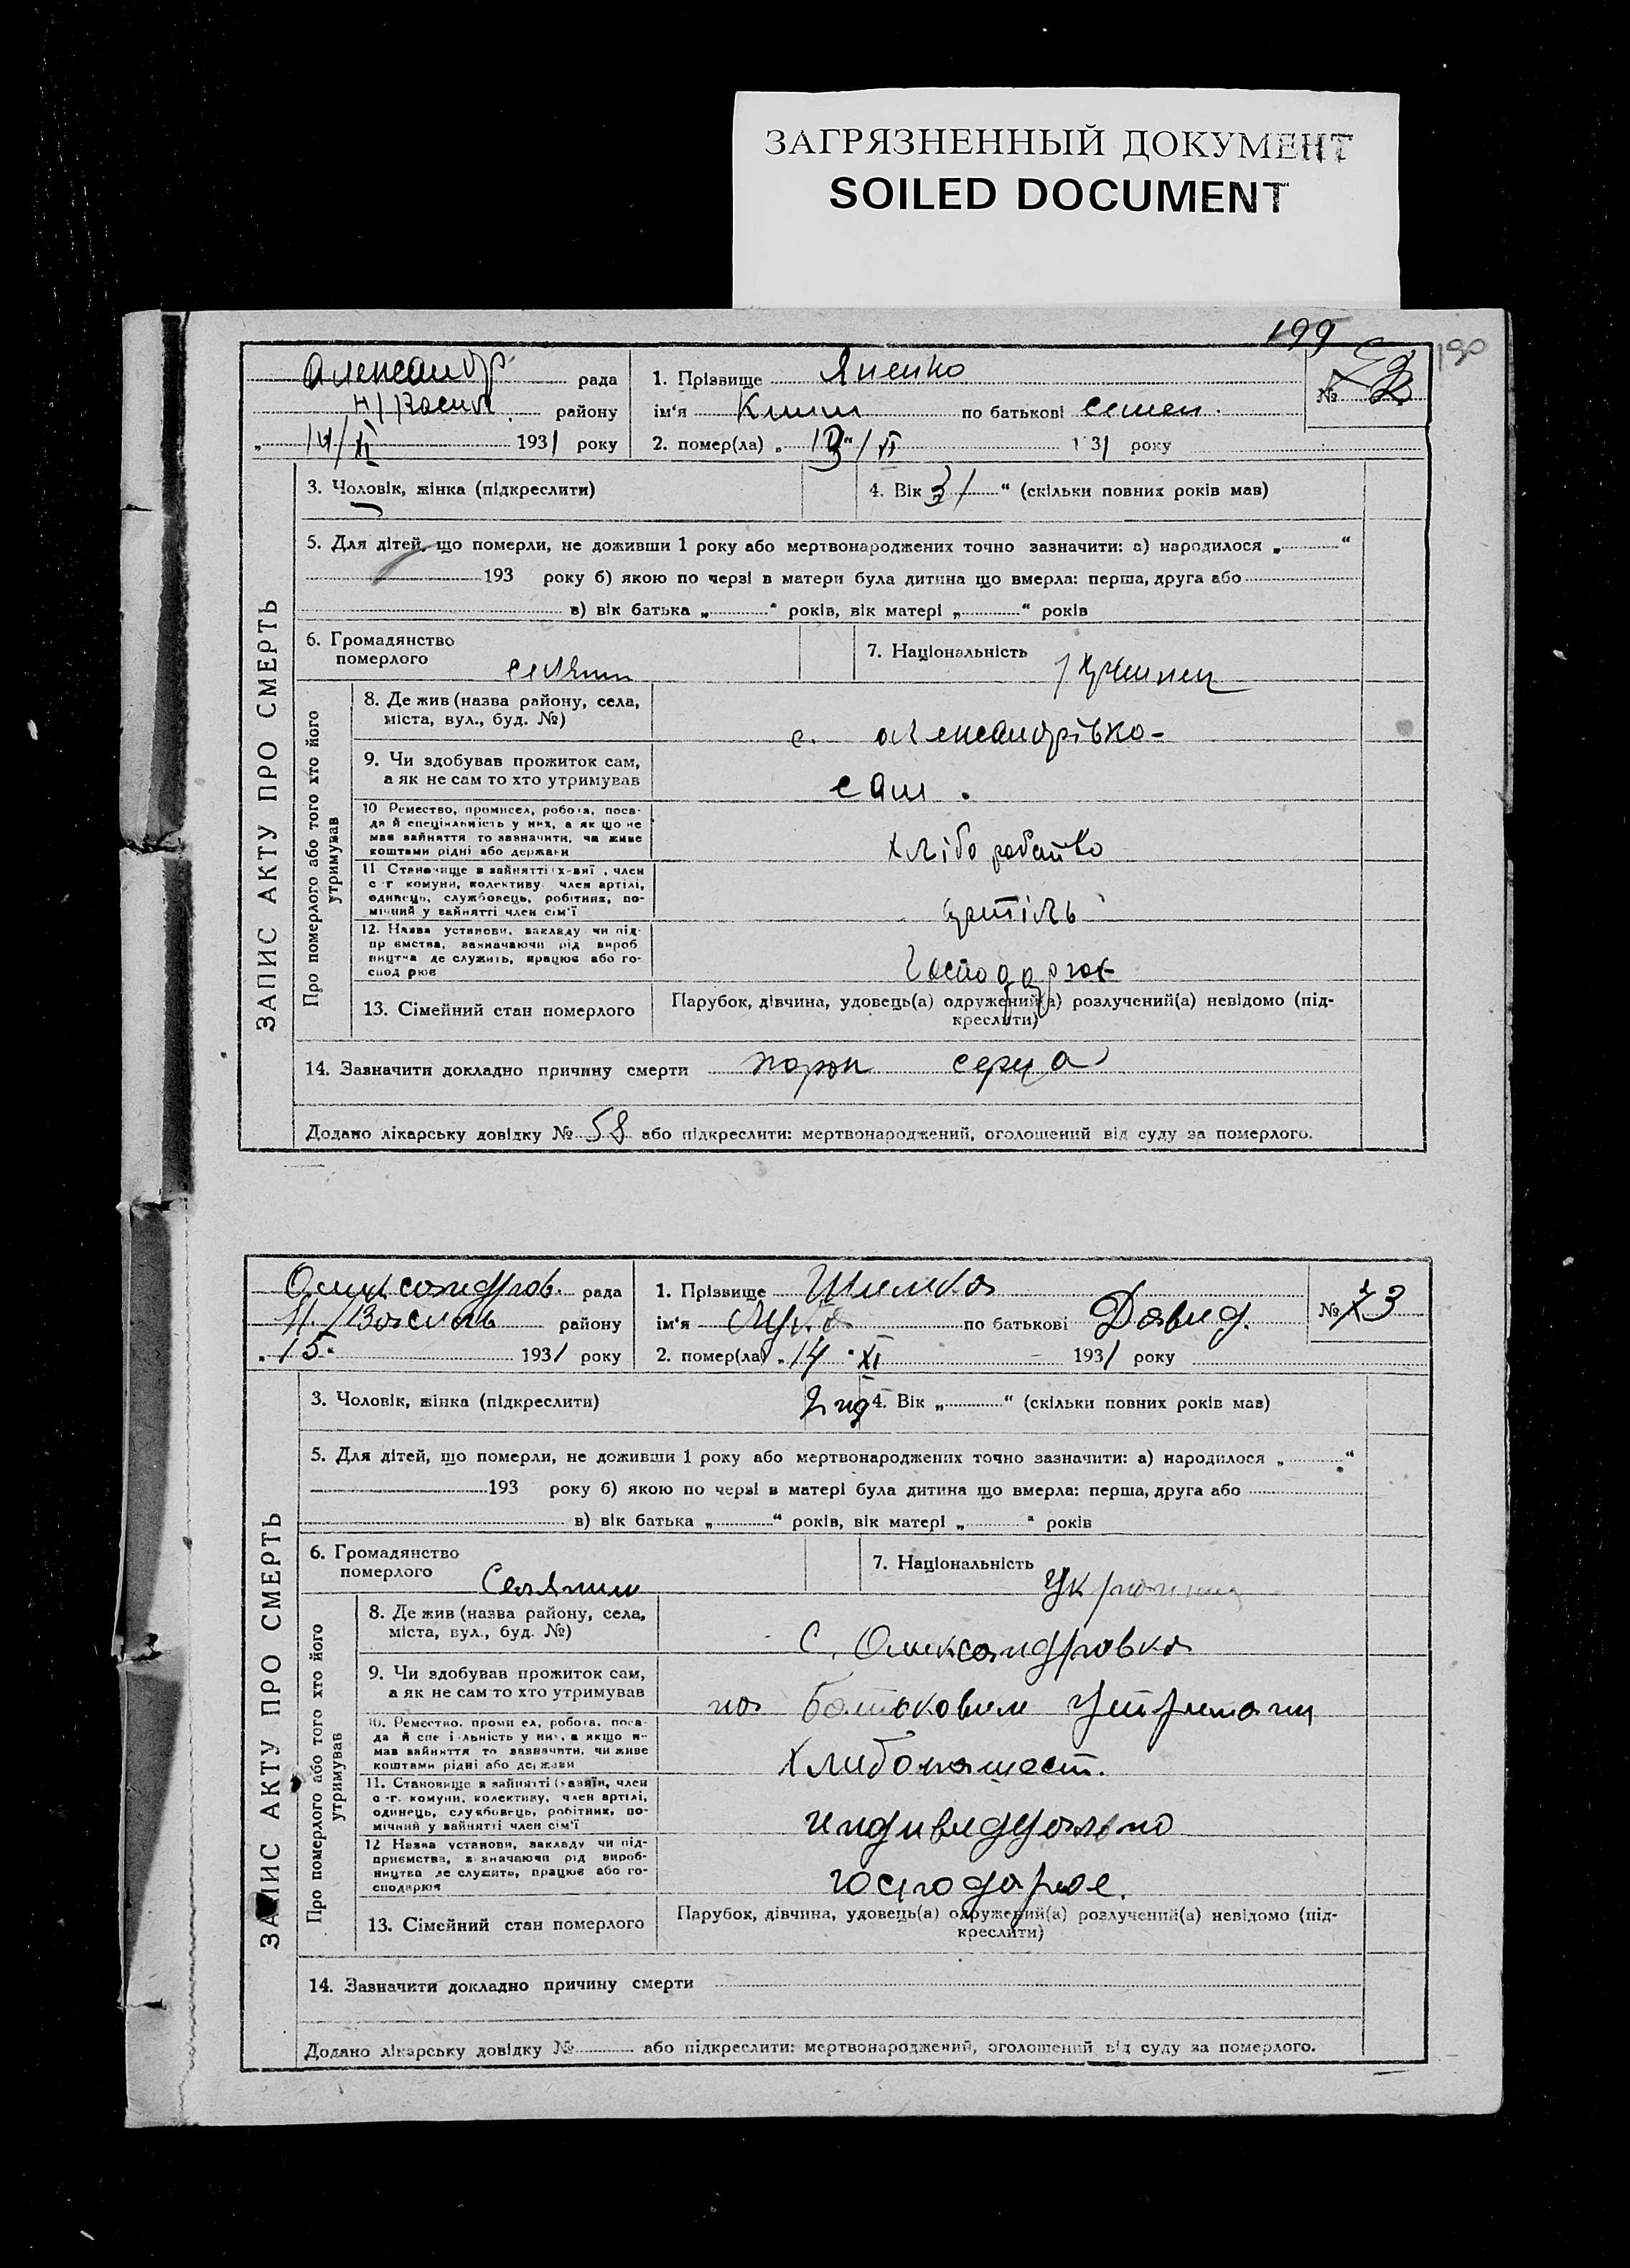 ЗАГРЯЗНЕННЫЙ ДОКУМЕНТ
SOILED DOCUMENT
199
190
ЗАПИС АКТУ ПРО СМЕРТЬ
Александр рада
Н/Васил району
„ 14/XI 1931 року
1. Прізвище Яненко
ім'я Клим по батькові Семен.
2. помер(ла) „13“/XI 131 року
№
3. Чоловік, жінка (підкреслити)
4. Вік 31 “ (скільки повних років мав)
5. Для дітей, що померли, не доживши 1 року або мертвонароджених точно зазначити: а) народилося „ “
193 року б) якою по черзі в матери була дитина що вмерла: перша, друга або
в) вік батька „ “ років, вік матері „ “ років
6. Громадянство померлого селянин
7. Національність
Про померлого або того хто його утримував
8. Де жив (назва району, села,
міста, вул., буд. №)
с. Александрівка
9. Чи здобував прожиток сам,
а як не сам то хто утримував
сам.
10 Ремество, промисел, робота, поса-
да й спеціяльність у них, а як що не
мав зайняття то зазначити, чи живе
коштами рідні або держави
хлібо робство
11 Становище в зайнятті х-вні, член
с-г комуни, колективу член артілі,
одинець, службовець, робітник, по-
мічний у зайнятті член сім'ї
артіль
12. Назва установи, закладу чи під-
пр ємства, зазначаючи рід вироб
ництва де служить, працює або го-
спод рює
13. Сімейний стан померлого
Парубок, дівчина, удовець(а) одружений(а) розлучений(а) невідомо (під-
креслити)
14. Зазначити докладно причину смерти порок серца
Додано лікарську довідку № 58 або підкреслити: мертвонароджений, оголошений від суду за померлого.
ЗАПИС АКТУ ПРО СМЕРТЬ
Олександров. рада
Н. /Василь району
„15“ 1931 року
1. Прізвище
ім'я по батькові Давид.
2. помер(ла) „14“ XI 1931 року
№ 73
3. Чоловік, жінка (підкреслити)
4. Вік „ “ (скільки повних років мав)
5. Для дітей, що померли, не доживши 1 року або мертвонароджених точно зазначити: а) народилося „ “
193 року б) якою по черзі в матері була дитина що вмерла: перша, друга або
в) вік батька „ “ років, вік матері „ “ років
6. Громадянство померлого Селянин
7. Національність
Про померлого або того хто його утримував
8. Де жив (назва району, села,
міста, вул., буд. №)
С. Олександровка
9. Чи здобував прожиток сам,
а як не сам то хто утримував
на батьковим утримани
10. Ремество, проми ел, робота, поса-
да й спе і льність у них, а якщо н-
мав зайняття то зазначити, чи живе
коштами рідні або держави
Хлибопашест.
11. Становище в зайнятті (хазяїн, член
с-г. комуни, колективу, член артілі,
одинець, службовець, робітник, по-
мічний у зайнятті член сім'ї
индивидуально
12 Назва установи, закладу чи під-
приємства, з значаючи рід вироб-
ництва де служить, працює або го-
сподарює
господарює.
13. Сімейний стан померлого
Парубок, дівчина, удовець(а) одружений(а) розлучений(а) невідомо (під-
креслити)
14. Зазначити докладно причину смерти
Додано лікарську довідку № або підкреслити: мертвонароджений, оголошений від суду за померлого.